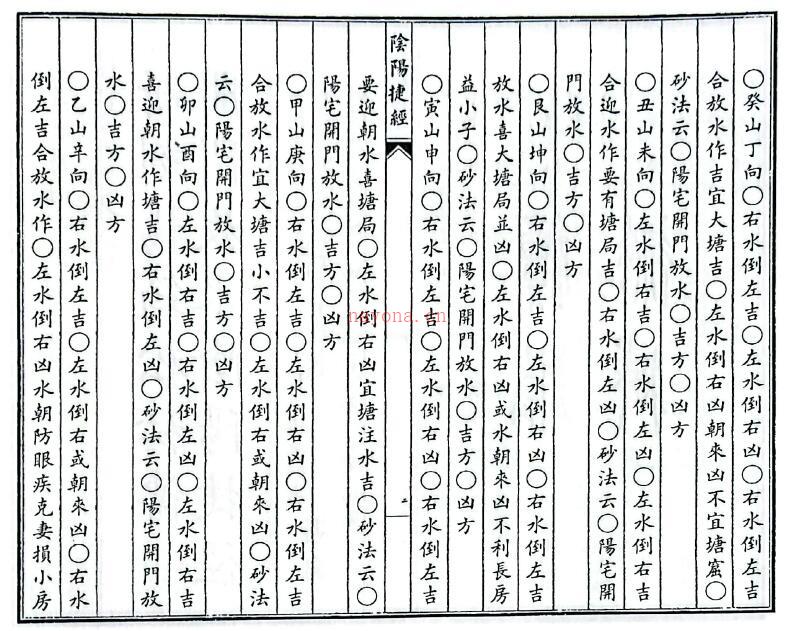 〇癸山丁向〇右水倒左吉〇左水倒右凶〇右水倒左吉
合放水作吉宜大塘吉〇左水倒右凶朝來凶不宜塘窟〇
砂法云〇陽宅開門放水〇吉方〇凶方
〇丑山未向〇左水倒右吉〇右水倒左凶〇左水倒右吉
合迎水作要有塘局吉〇右水倒左凶〇砂法云〇陽宅開
門放水〇吉方〇凶方
〇艮山坤向〇右水倒左吉〇左水倒右凶〇右水倒左吉
放水喜大塘局並凶〇左水倒右凶或水朝來凶不利長房
益小子〇砂法云〇陽宅開門放水〇吉方〇凶方
〇寅山申向〇右水倒左吉〇左水倒右凶〇右水倒左吉
陰陽捷經
二
要迎朝水喜塘局〇左水倒右凶宜塘注水吉〇砂法云〇
陽宅開門放水〇吉方〇凶方
〇甲山庚向〇右水倒左吉〇左水倒右凶〇右水倒左吉
合放水作宜大塘吉小不吉〇左水倒右或朝來凶〇砂法
云〇陽宅開門放水〇吉方〇凶方
〇卯山酉向〇左水倒右吉〇右水倒左凶〇左水倒右吉
喜迎朝水作塘吉〇右水倒左凶〇砂法云〇陽宅開門放
水〇吉方〇凶方
〇乙山辛向〇右水倒左吉〇左水倒右或朝來凶〇右水
倒左吉合放水作〇左水倒右凶水朝防眼疾克妻損小房
nayona.cn